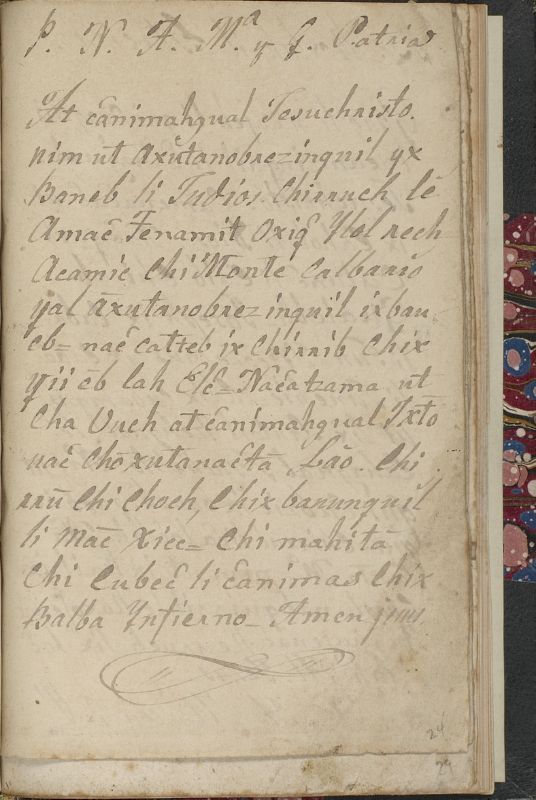 P. N. A. M.a y G. Patria
At cänimahqual Jesuchristo.
nim ut axutanobrezinquil yx
Baneb li Judios Chirruch lē
Amac̄ Tenamit Oxiq̄ Ylol rech
Acamic Chi Monte Calbario
yal axutanobrezinquil ix bau
eb= nac̄ catteb ix Chirrib Chix
yii ēb lah Elc̄= Nac̄atzama ut
Cha Vuch at c̄animahqual Jxto
nac̄ Chōxutanac̄tā Lāo. Chi
rrū Chi Choch, Chix banunquil
li māc̄ Xicc= Chi mahitā
Chi Cubec̄ li c̄animas Chix
Balba Ynfierno= Amen jesus
24
24